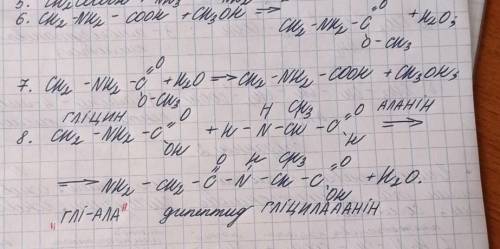 5. CH₂COCOOH + NH₃ NH₂
6. CH₂-NH₂-COOH + CH₃OH ⇒ CH₂-NH₂-C=O O-CH₃ + H₂O;
7. CH₂-NH₂-C=O O-CH₃ + H₂O ⇒ CH₂-NH₂-COOH + CH₃OH;
ГЛІЦИН АЛАНІН
8. CH₂-NH₂-C=O OH + H-N-CH-C=O H CH₃ H ⇒
⇒ NH₂-CH₂-C=O-N-CH-C=O H CH₃ OH + H₂O.
"ГЛІ-АЛА" дипептид ГЛІЦИЛАЛАНІН